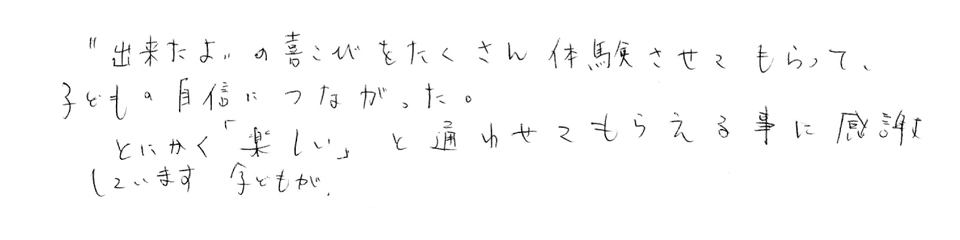 "出来たよ"の喜こびをたくさん体験させてもらって、
子どもの自信につながった。
とにかく「楽しい」と通わせてもらえる事に感謝
しています 子どもが、